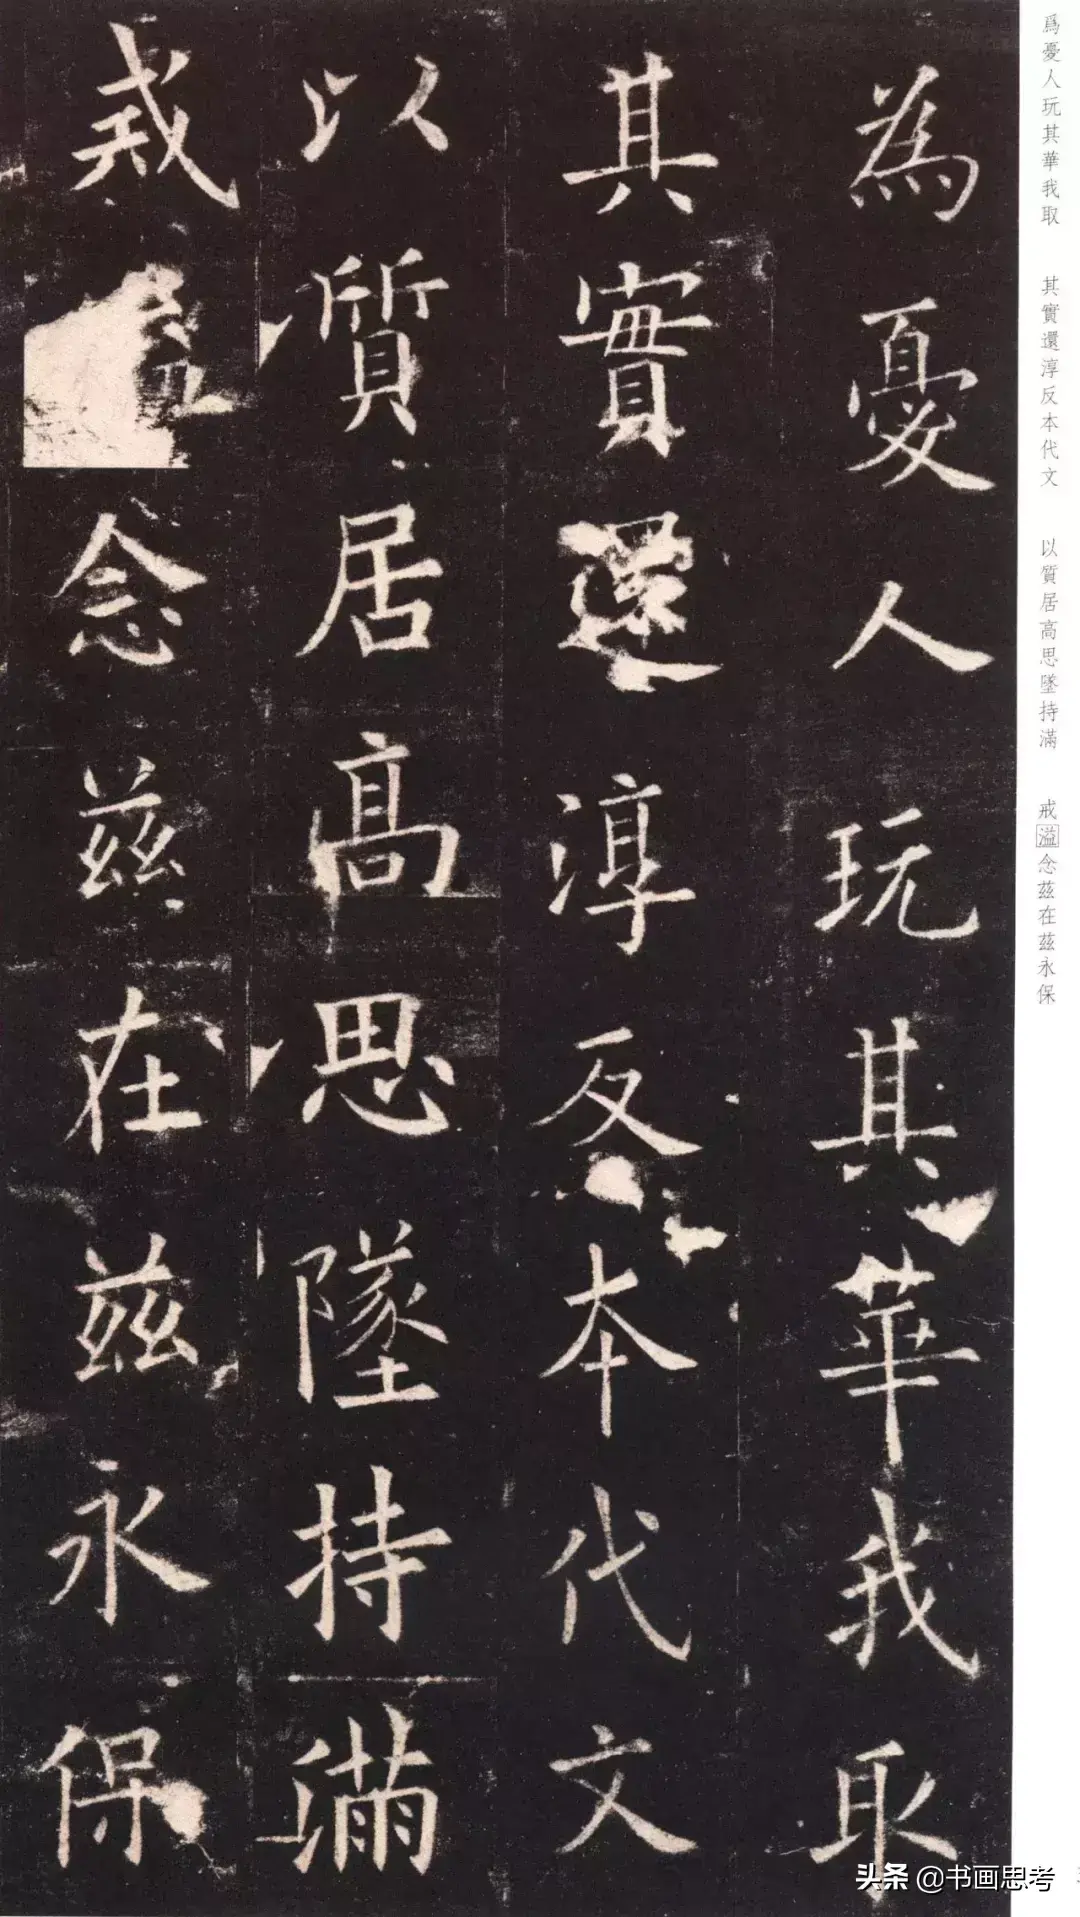 為憂人玩其華我取
其實還淳反本代文
以質居高思墜持滿
戒念茲在茲永保
爲憂人玩其華我取 其實還淳反本代文 以質居高思墜持滿 戒溢念茲在茲永保
头条 @书画思考